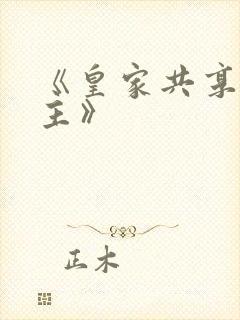 《皇家共享
主》
正木